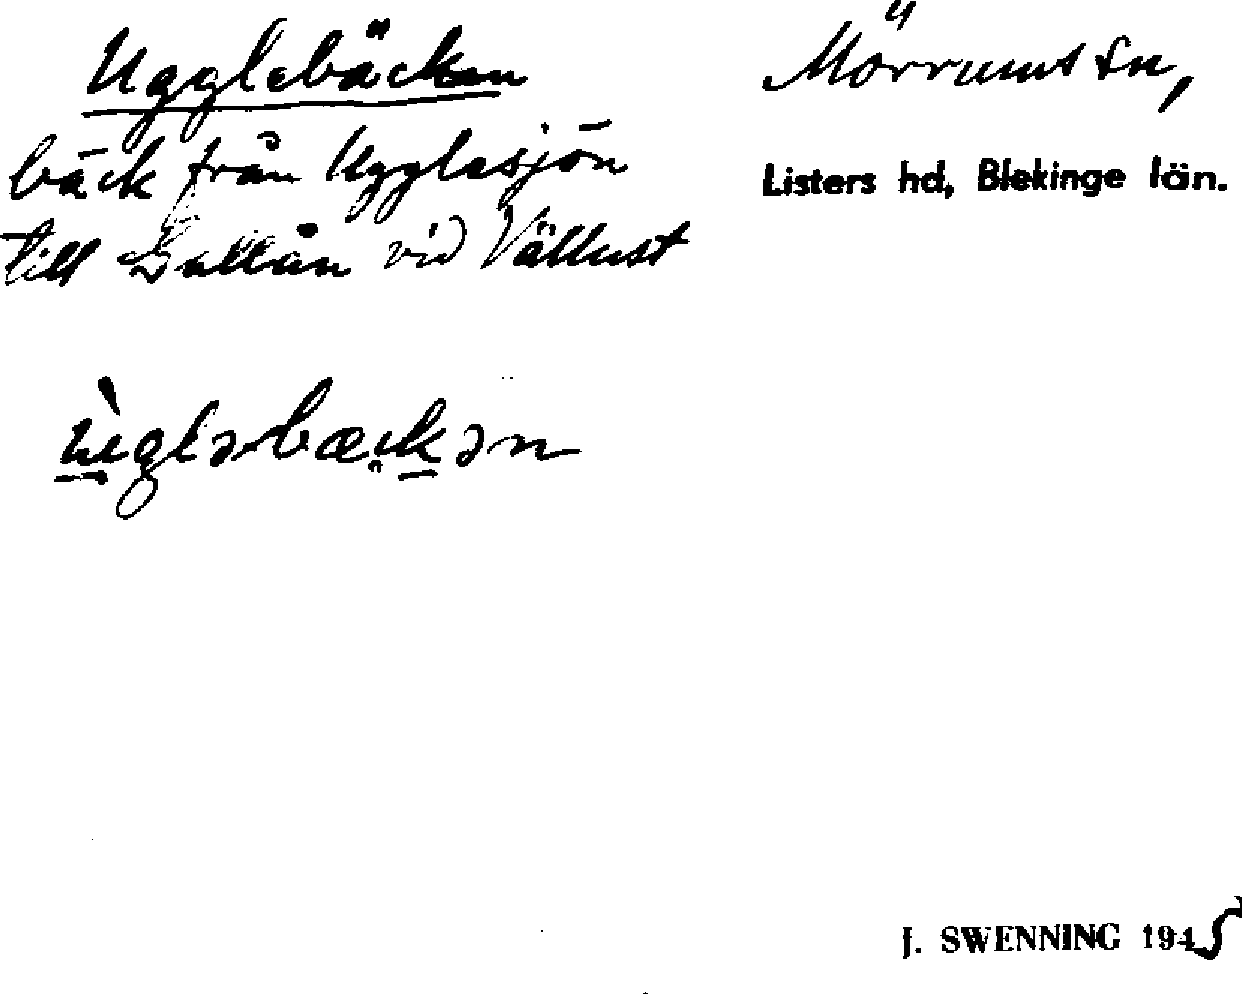 Ugglebäcken
Mörrums sn,
bäck från Ugglesjön
Listers hd, Blekinge län.
till Gallån vid Vällust
ùgləbæckən
J. SWENNING 1945